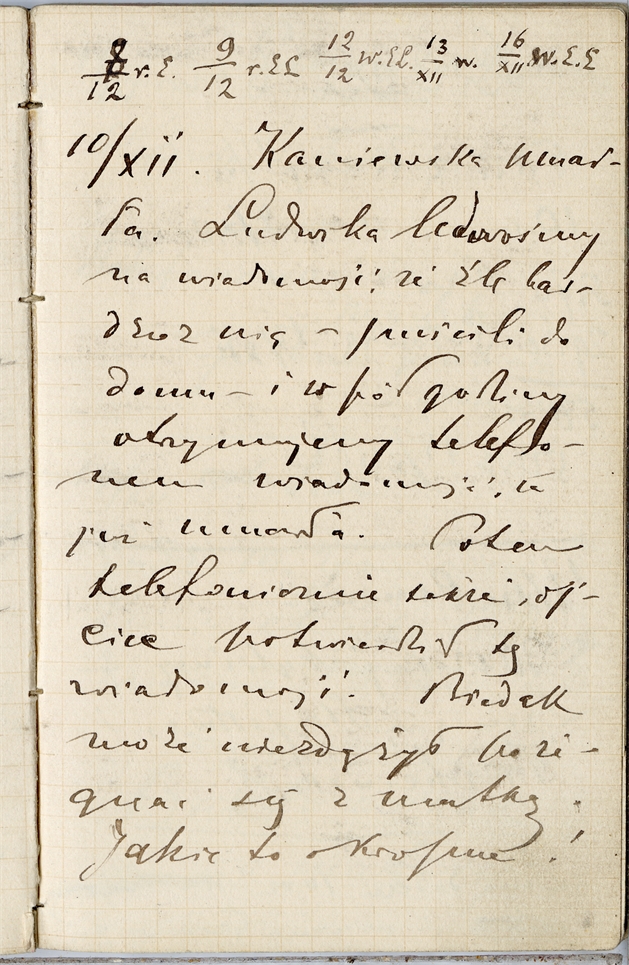 8/12 r. E. 9/12 r. EL 12/12 W. EL. 13/XII w. 16/XII W. E. E
10/XII. Kaniewska umar-
ła. Ludwika
na wiadomość, że źle bar-
dzo z nią – puścili do
domu – i w pół godziny
otrzymujemy telefo-
nem wiadomość, że
już umarła. Potem
telefonicznie także oj-
ciec potwierdził tę
wiadomość. Biedak
może nie zdążył poże-
gnać się z matką.
Jakie to okropne!